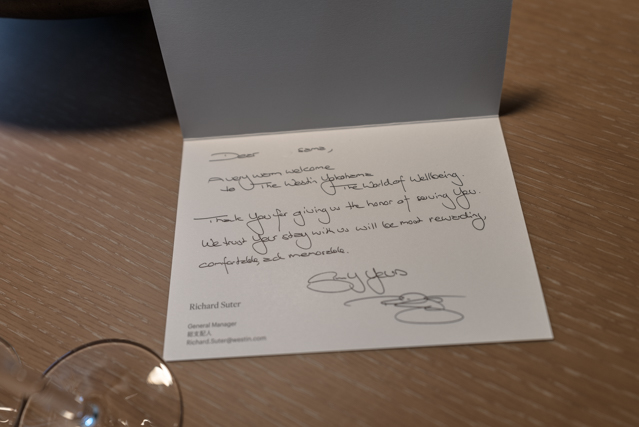 Dear sama,
A very warm welcome
to The Westin Yokohama
The World of Wellbeing.
Thank You for giving us the honor of serving You.
We trust Your stay with us will be most rewarding,
comfortable, and memorable.
Yours
Richard Suter
General Manager
総支配人
Richard.Suter@westin.com